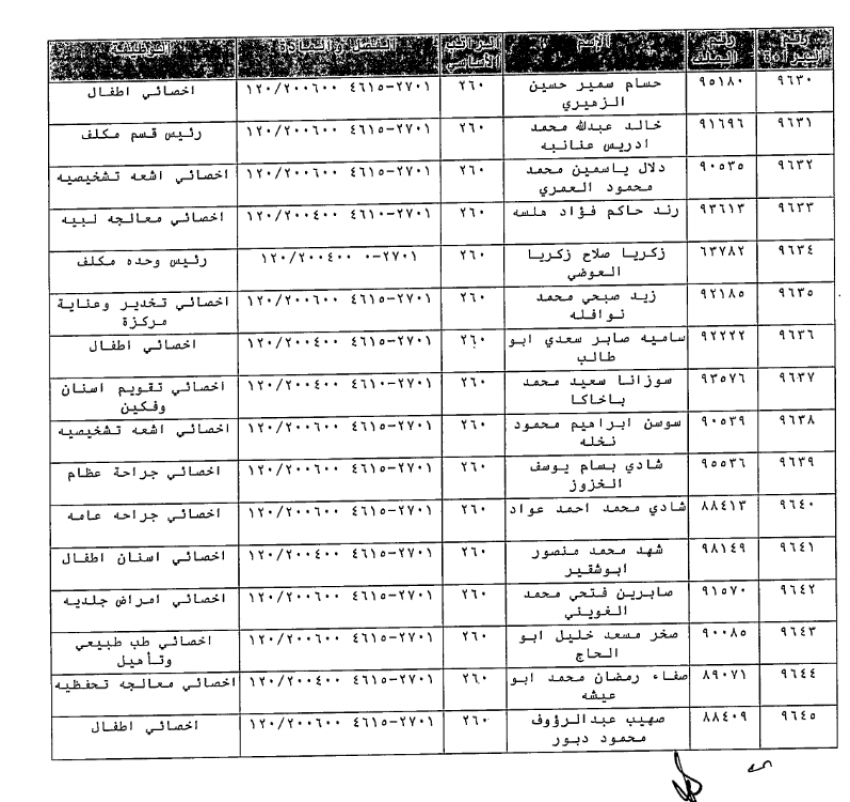 رقم الموازنة رقم الملف الإسم الراتب الأساسي الفصل والمادة الوظيفة
٩٦٣٠ ٩٥١٨٠ حسام سمير حسين الزهيري ٢٦٠ ٢٧٠١-٤٦١٥ ١٢٠/٢٠٠٦٠٠ اخصائي اطفال
٩٦٣١ ٩١٦٩٦ خالد عبدالله محمد ادريس عنانبه ٢٦٠ ٢٧٠١-٤٦١٥ ١٢٠/٢٠٠٦٠٠ رئيس قسم مكلف
٩٦٣٢ ٩٠٥٣٥ دلال ياسمين محمد محمود العمري ٢٦٠ ٢٧٠١-٤٦١٥ ١٢٠/٢٠٠٦٠٠ اخصائي اشعه تشخيصيه
٩٦٣٣ ٩٣٦١٣ رند حاكم فؤاد ملسه ٢٦٠ ٢٧٠١-٤٦١٠ ١٢٠/٢٠٠٤٠٠ اخصائي معالجه لبيه
٩٦٣٤ ٦٣٧٨٢ زكريا صلاح زكريا العوضي ٢٦٠ ٢٧٠١-٠ ١٢٠/٢٠٠٤٠٠ رئيس وحده مكلف
٩٦٣٥ ٩٢١٨٥ زيد صبحي محمد نوافله ٢٦٠ ٢٧٠١-٤٦١٥ ١٢٠/٢٠٠٦٠٠ اخصائي تخدير وعناية مركزة
٩٦٣٦ ٩٢٢٢٢ ساميه صابر سعدي ابو طالب ٢٦٠ ٢٧٠١-٤٦١٥ ١٢٠/٢٠٠٤٠٠ اخصائي اطفال
٩٦٣٧ ٩٣٥٧٦ سوزانا سعيد محمد باخاكا ٢٦٠ ٢٧٠١-٤٦١٠ ١٢٠/٢٠٠٤٠٠ اخصائي تقويم اسنان وفكين
٩٦٣٨ ٩٠٥٣٩ سوسن ابراهيم محمود نخله ٢٦٠ ٢٧٠١-٤٦١٥ ١٢٠/٢٠٠٦٠٠ اخصائي اشعه تشخيصيه
٩٦٣٩ ٩٥٥٣٦ شادي بسام يوسف الخزوز ٢٦٠ ٢٧٠١-٤٦١٥ ١٢٠/٢٠٠٦٠٠ اخصائي جراحة عظام
٩٦٤٠ ٨٨٤١٣ شادي محمد احمد عواد ٢٦٠ ٢٧٠١-٤٦١٥ ١٢٠/٢٠٠٦٠٠ اخصائي جراحه عامه
٩٦٤١ ٩٨١٤٩ شهد محمد منصور ابوشقير ٢٦٠ ٢٧٠١-٤٦١٥ ١٢٠/٢٠٠٤٠٠ اخصائي اسنان اطفال
٩٦٤٢ ٩١٥٧٠ صابرين فتحي محمد الغويني ٢٦٠ ٢٧٠١-٤٦١٥ ١٢٠/٢٠٠٦٠٠ اخصائي امراض جلديه
٩٦٤٣ ٩٠٠٨٥ صخر مسعد خليل ابو الحاج ٢٦٠ ٢٧٠١-٤٦١٥ ١٢٠/٢٠٠٦٠٠ اخصائي طب طبيعي وتأهيل
٩٦٤٤ ٨٩٠٧١ صفاء رمضان محمد ابو عيشه ٢٦٠ ٢٧٠١-٤٦١٥ ١٢٠/٢٠٠٤٠٠ اخصائي معالجه تحفظيه
٩٦٤٥ ٨٨٤٠٩ صهيب عبدالرؤوف محمود دبور ٢٦٠ ٢٧٠١-٤٦١٥ ١٢٠/٢٠٠٦٠٠ اخصائي اطفال